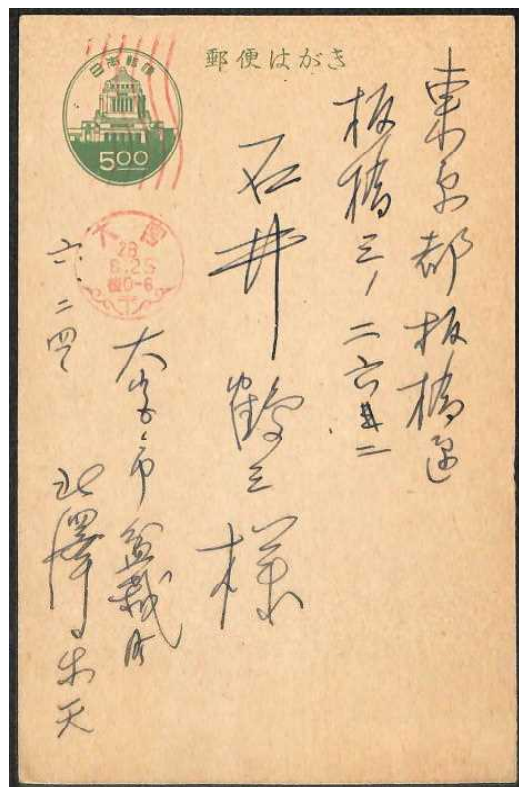 郵便はがき
日本郵便
5.00
大宮
28
6.25
0-6
東京都板橋区
板橋三ノ二六
石井鶴三様
六、二四
大宮市盆栽町
北澤楽天